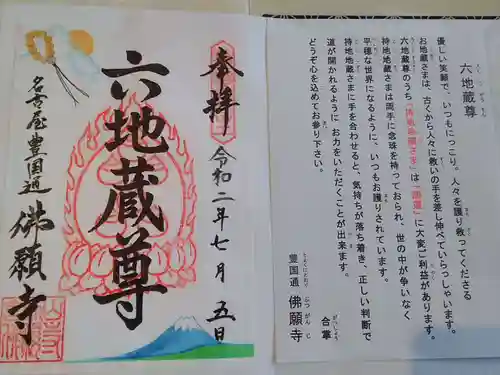 奉拝
令和二年七月五日
六地蔵尊
名古屋豊国通
佛願寺
六地蔵尊
優しい笑顔で、いつもにっこり。人々を護り救ってくださる
お地蔵さまは、古くから人々に救いの手を差し伸べていらっしゃいます。
六地蔵尊のうち「持地地蔵さま」は「開運」に大変ご利益があります。
持地地蔵さまは両手に念珠を持っておられ、世の中が争いなく
平穏な世界になるように、いつもお護りされています。
持地地蔵さまに手を合わせると、気持ちが落ち着き、正しい判断で
道が開かれるように お力をいただくことが出来ます。
どうぞ心を込めてお参り下さい。
合掌
豊国通 佛願寺